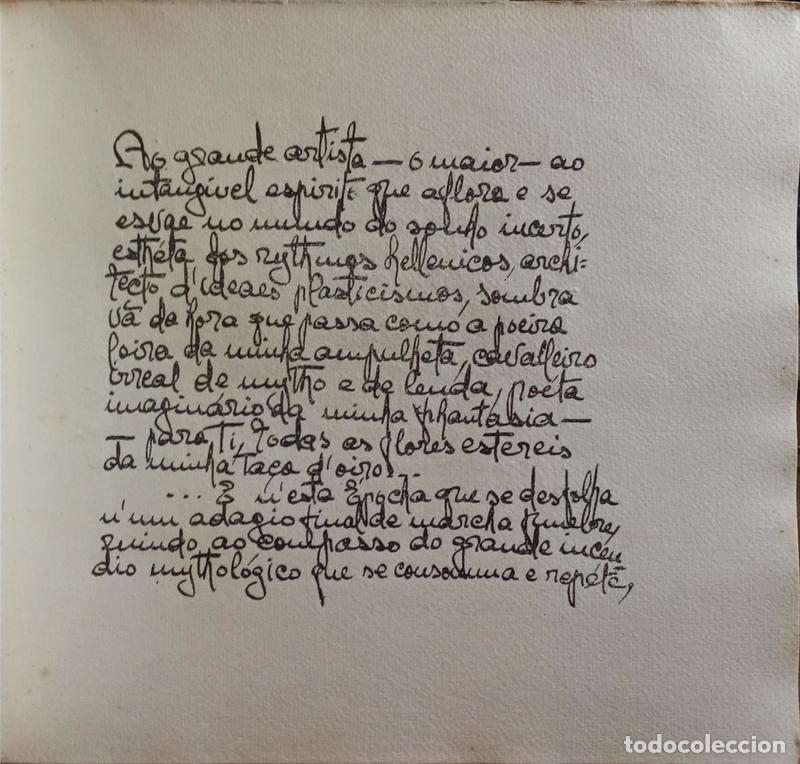 Ao grande artista — o maior — ao
intangível espirito que aflora e se
esvae no mundo do sonho incerto,
esthéta dos rythmos hellenicos, archi=
tecto d'ideaes plasticismos, sombra
vã da hora que passa como a poeira
loira da minha ampulheta, cavalleiro
irreal de mytho e de lenda, poéta
imaginário da minha phantasia —
— para Ti, todas as flores estereis
da minha taça d'oiro...
... E n'esta Épocha que se desfolha
n'um adagio final de marcha funebre,
ruindo ao compasso do grande incên
dio mythológico que se consomma e repéte,
todocoleccion.net